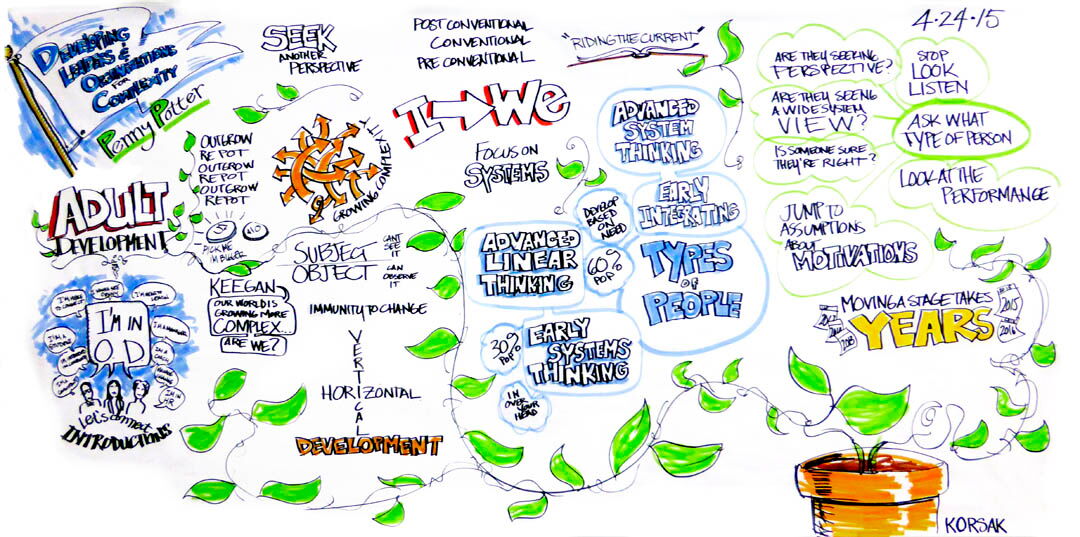 DEVELOPING
LEADERS &
ORGANIZATIONS
FOR
COMPLEXITY
Penny Potter
SEEK
ANOTHER
PERSPECTIVE
POST CONVENTIONAL
CONVENTIONAL
PRE CONVENTIONAL
"RIDING THE CURRENT"
4·24·15
ADULT
DEVELOPMENT
OUTGROW
REPOT
OUTGROW
REPOT
OUTGROW
REPOT
GROWING COMPLEXITY
I → We
FOCUS ON
SYSTEMS
PICK ME
I'M BLUE
I'M IN
OD
Let's connect
INTRODUCTIONS
KEEGAN
OUR WORLD IS
GROWING MORE
COMPLEX...
ARE WE?
SUBJECT
OBJECT
CANT
SEE
IT
CAN
OBSERVE
IT
IMMUNITY TO CHANGE
VERTICAL
HORIZONTAL
DEVELOPMENT
ADVANCED
SYSTEM
THINKING
EARLY
INTEGRATING
DEVELOP
BASED
ON
NEED
TYPES
OF
PEOPLE
ADVANCED
LINEAR
THINKING
60%
POP
EARLY
SYSTEMS
THINKING
30%
POP
IN
OVER
YOUR
HEAD
ARE THEY SEEKING
PERSPECTIVE?
ARE THEY SEEING
A WIDE SYSTEM
VIEW?
IS SOMEONE SURE
THEY'RE RIGHT?
STOP
LOOK
LISTEN
ASK WHAT
TYPE OF PERSON
LOOK AT THE
PERFORMANCE
JUMP TO
ASSUMPTIONS
ABOUT
MOTIVATIONS
MOVING A STAGE TAKES
YEARS
2015
2016
KORSAK